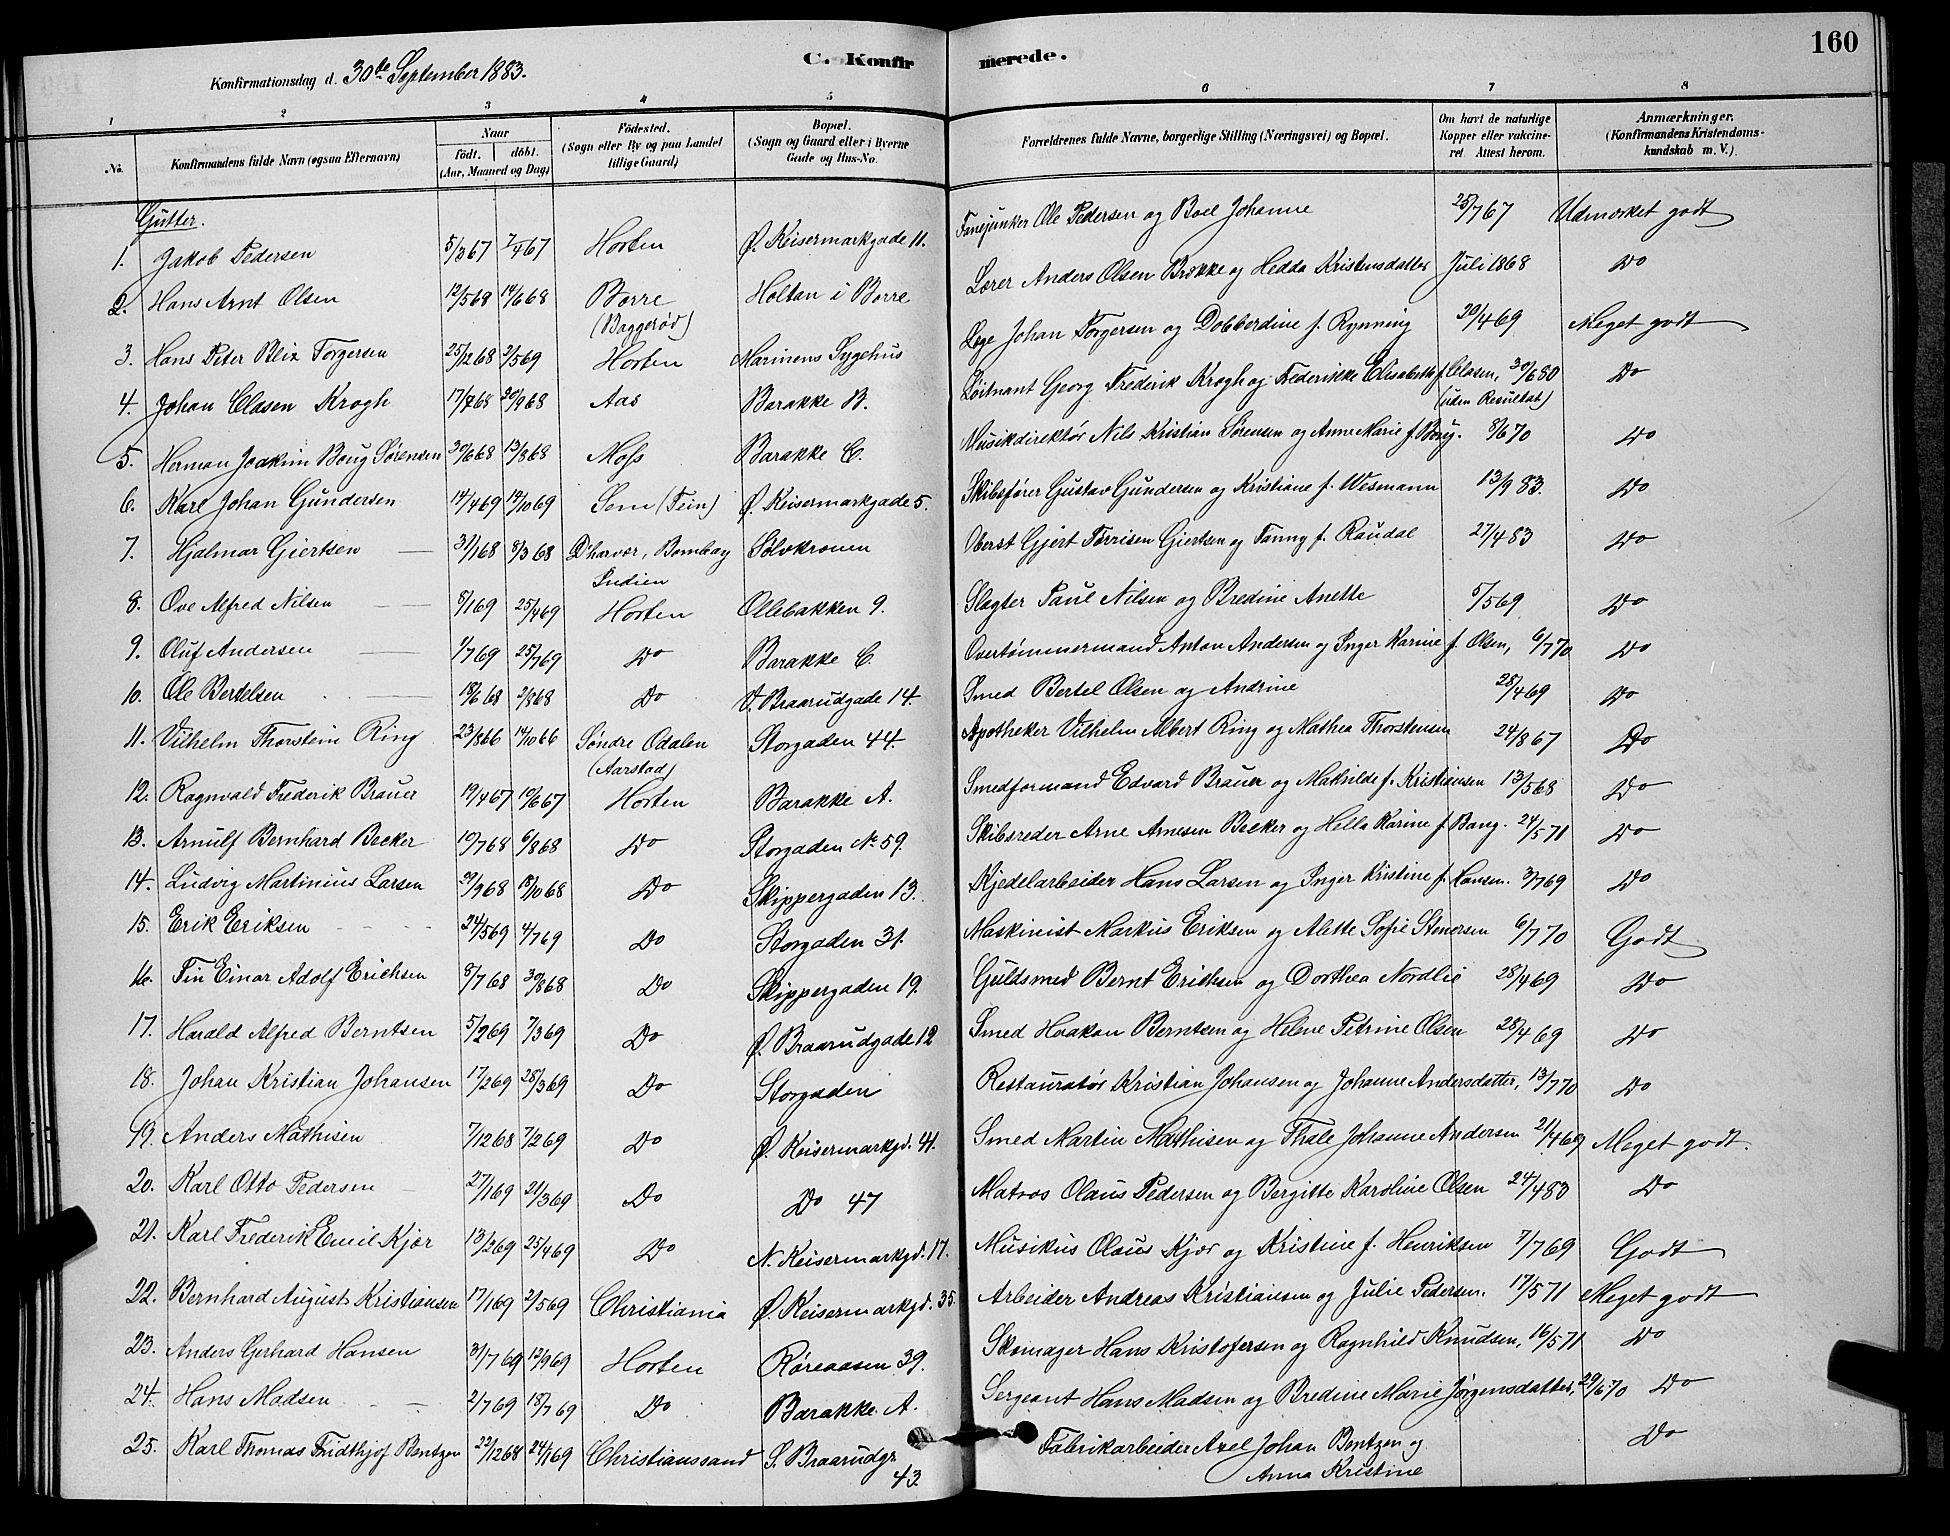 160
Konfirmationsdag d. 30te September 1883. C. Konfirmerede.
1 2 3 4 5 6 7 8
No. Konfirmandens fulde Navn (ogsaa Efternavn) Naar født. døbt. (Aar, Maaned og Dag) Fødested. (Sogn eller By og paa Landet tillige Gaard) Bopæl. (Sogn og Gaard eller i Byerne Gade og Hus-No. Forældrenes fulde Navne, borgerlige Stilling (Næringsvei) og Bopæl. Om havt de naturlige Kopper eller vakcineret. Attest herom. Anmærkninger. (Konfirmandens Kristendomskundskab m. V.)
Gutter.
1. Jakob Pedersen 5/3 67 7/4 67 Horten Ø. Keisermarkgade 11. Fanejunker Ole Pedersen og Boel Johanne 25/7 67 Udmærket godt
2. Hans Arnt Olsen 12/5 68 14/6 68 Borre (Baggerød) Holtan i Borre Lærer Anders Olsen Brække og Hedda Kristensdatter Juli 1868 Do
3. Hans Peter Blix Torgersen 25/12 68 2/5 69 Horten Marinens Sygehus Læge Johan Torgersen og Dobberdine f. Rynning 30/4 69 Meget godt
4. Johan Clasen Krogh 17/7 68 20/9 68 Aas Barakke B. Løitnant Georg Frederik Krogh og Frederikke Elisabeth f. Clasen, 30/6 80 (uden Resultat) Do
5. Herman Joakim Boug Sørensen 30/6 68 13/8 68 Moss Barakke C. Musikdirektør Nils Kristian Sørensen og Anne Marie f. Boug. 8/6 70 Do
6. Karl Johan Gundersen 14/4 69 14/10 69 Sem (Tein) Ø. Keisermarkgade 5. Skibsfører Gustav Gundersen og Kristiane f. Wesmann 13/9 83. Do
7. Hjalmar Giertsen 31/1 68 8/3 68 Dharvar, Bombay Indien Sølvkronen Oberst Gjert Tørrisen Giertsen og Fanny f. Raudal 27/4 83 Do
8. Ove Alfred Nilsen 8/1 69 25/4 69 Horten Ollebakken 9. Slagter Paul Nilsen og Bredine Anette 5/5 69 Do
9. Oluf Andersen 1/7 69 25/7 69 Do Barakke C. Overtømmermand Anton Andersen og Inger Karine f. Olsen, 6/7 70 Do
10. Ole Bertelsen 18/6 68 2/8 68 Do V. Braarudgade 14. Smed Bertel Olsen og Andrine 28/4 69 Do
11. Vilhelm Thorstein Ring 23/8 66 14/10 66 Søndre Odalen (Aarstad) Storgaden 44. Apotheker Vilhelm Albert Ring og Mathea Thorstensen 24/8 67 Do
12. Ragnvald Frederik Brauer 19/4 67 10/6 67 Horten Barakke A. Smedformand Edvard Brauer og Mathilde f. Kristiansen 13/5 68 Do
13. Arnulf Bernhard Becker 10/7 68 6/8 68 Do Storgaden No 59. Skibsreder Arne Arnesen Becker og Hella Karine f. Bang. 24/5 71 Do
14. Ludvig Martinius Larsen 29/9 68 18/10 68 Do Skippergaden 13. Kjedelarbeider Hans Larsen og Inger Kristine f. Hansen. 3/7 69 Do
15. Erik Eriksen 24/5 69 4/7 69 Do Storgaden 31. Maskinist Markus Eriksen og Alette Sofie Stenersen 6/7 70 Godt
16. Fin Einar Adolf Erichsen 8/7 68 30/8 68 Do Skippergaden 19. Guldsmed Bernt Erichsen og Dorthea Nordlie 28/4 69 Do
17. Harald Alfred Berntsen 5/2 69 7/3 69 Do Ø. Braarudgade 12 Smed Haakon Berntsen og Helene Petrine Olsen 28/4 69 Do
18. Johan Kristian Johansen 17/2 69 28/3 69 Do Storgaden Restauratør Kristian Johansen og Johanne Andersdatter, 13/7 70 Do
19. Anders Mathisen 7/12 68 7/2 69 Do Ø. Keisermarkgd. 41. Smed Martin Mathisen og Thale Johanne Andersen 21/4 69 Meget godt.
20. Karl Otto Pedersen 27/1 69 21/3 69 Do Do 47 Matros Olaus Pedersen og Bergitte Karoline Olsen 24/4 83 Do
21. Karl Frederik Emil Kjær 13/2 69 25/4 69 Do N. Keisermarkgd. 17. Musikus Olaus Kjær og Kristine f. Henriksen 7/7 69 Godt
22. Bernhard August Kristiansen 17/1 69 2/5 69 Christiania Ø. Keisermarkgd. 35. Arbeider Andreas Kristiansen og Julie Pedersen. 17/5 71 Meget godt
23. Anders Gerhard Hansen 3/7 69 12/9 69 Horten Røreaasen 39. Skomager Hans Kristofersen og Ragnhild Knudsen, 16/5 71 Do
24. Hans Madsen 2/7 69 18/7 69 Do Barakke A. Sergeant Hans Madsen og Bredine Marie Jørgensdatter, 29/6 70 Do
25. Karl Thomas Fridthjof Bentzen 22/12 68 24/1 69 Christianssand S. Braarudgr. 43. Fabrikarbeider Axel Johan Bentzen og Anna Kristine Do